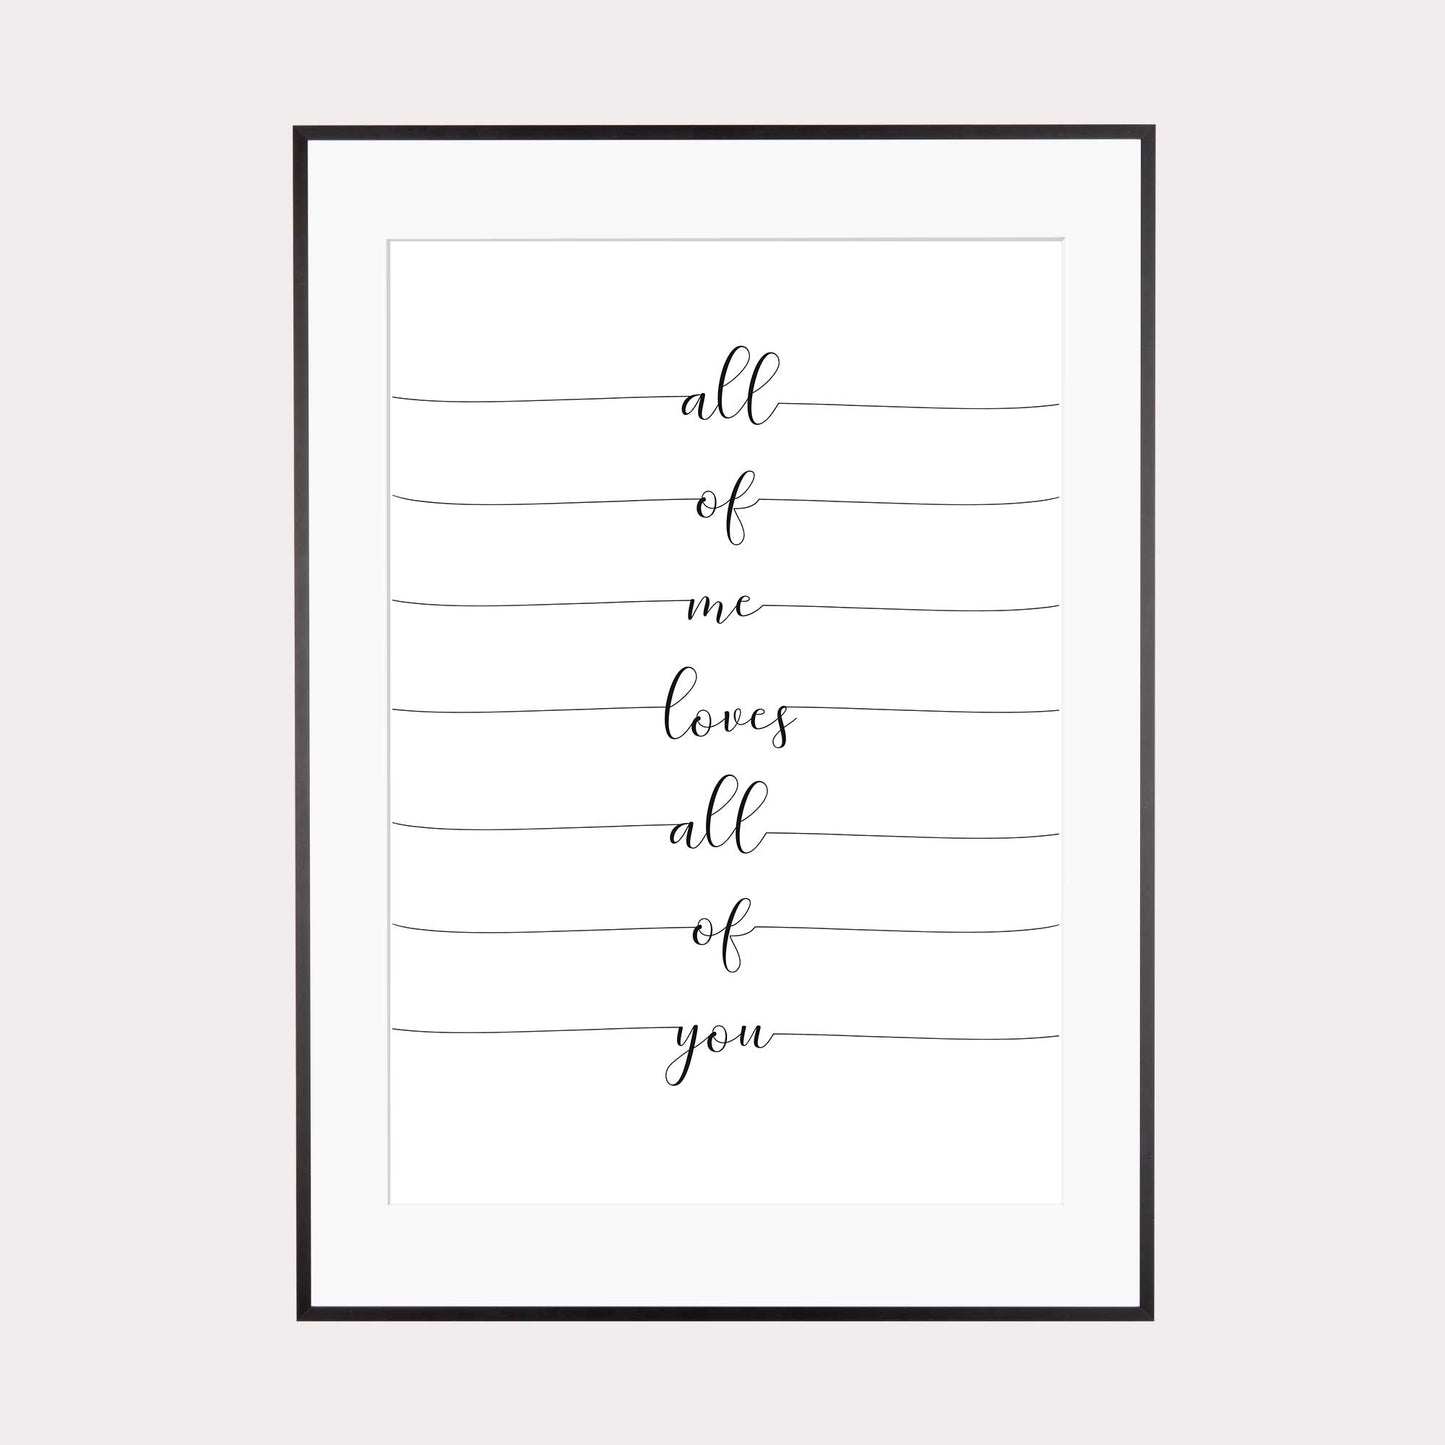 all
of
me
loves
all
of
you